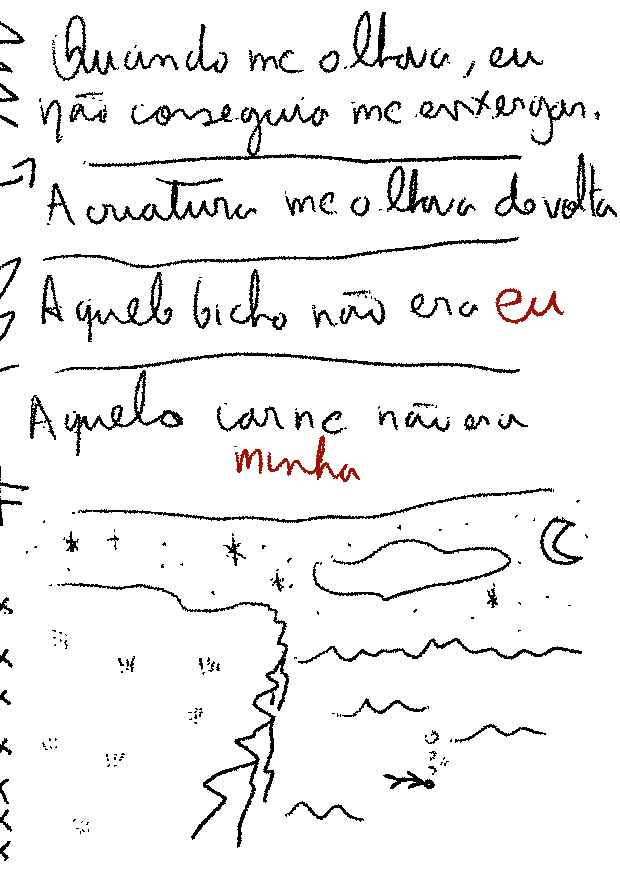 Quando me olhava, eu
não conseguia me enxergar.
A criatura me olhava de volta
Aquele bicho não era eu
Aquela carne não era
minha